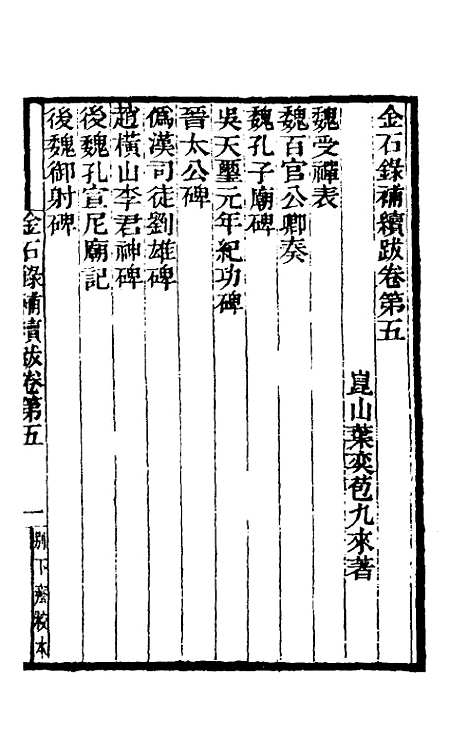 金石錄補續跋卷第五
崑山葉奕苞九來著
魏受禪表
魏百官公卿奏
魏孔子廟碑
吳天璽元年紀功碑
晉太公碑
僞漢司徒劉雄碑
趙橫山李君神碑
後魏孔宣尼廟記
後魏御射碑
金石錄補續跋卷第五
一
別下齋校本